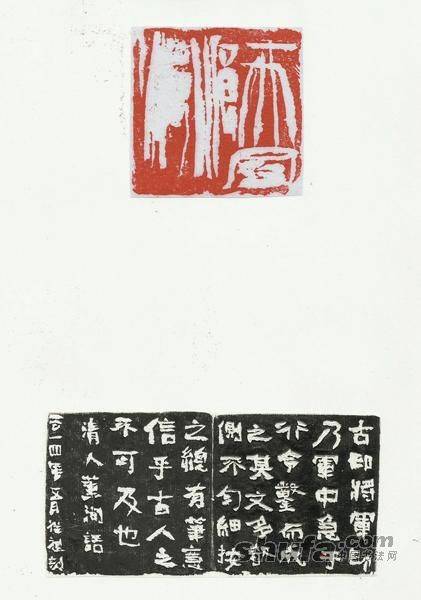 古印將軍印
乃軍中急于
行令鑿而成
之其文多
側不匀細按
之總有筆意
信乎古人之
不可及也
清人董洵語
一四年五月
shufa.com
中国书法网